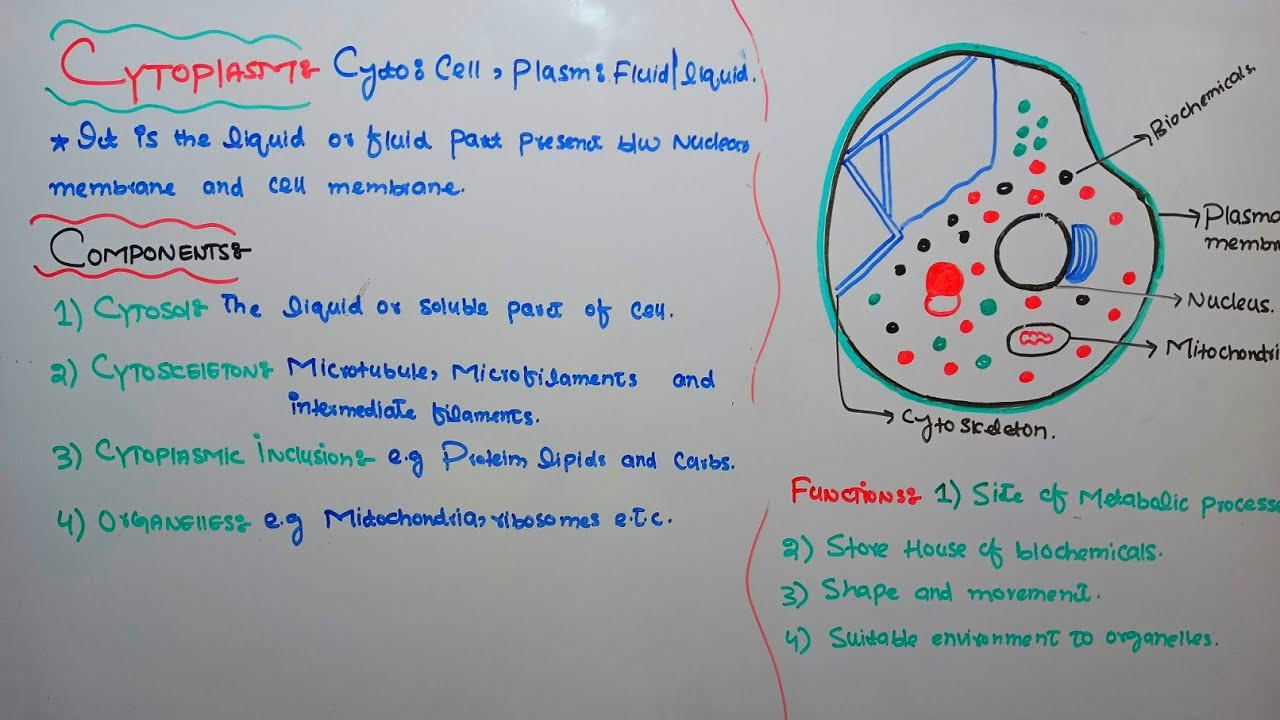 CYTOPlASM: Cyto: Cell, Plasm: Fluid/liquid.
* It is the liquid or fluid part present b/w Nuclear
membrane and cell membrane.
COMPONENTS:
1) CYTOSOl: The liquid or soluble part of cell.
2) CYTOSCElETON: Microtubule, Microfilaments and
intermediate filaments.
3) CYTOPlASMIC INClUSION: e.g Protein, lipids and carbs.
4) ORGANEllES: e.g Mitochondria, ribosomes e.t.c.
Biochemicals.
Plasma
membr
Nucleus.
Mitochondri
Cytoskeleton.
FUNCTIONS: 1) Site of Metabolic processe
2) Store House of biochemicals.
3) Shape and movement.
4) Suitable environment to organelles.